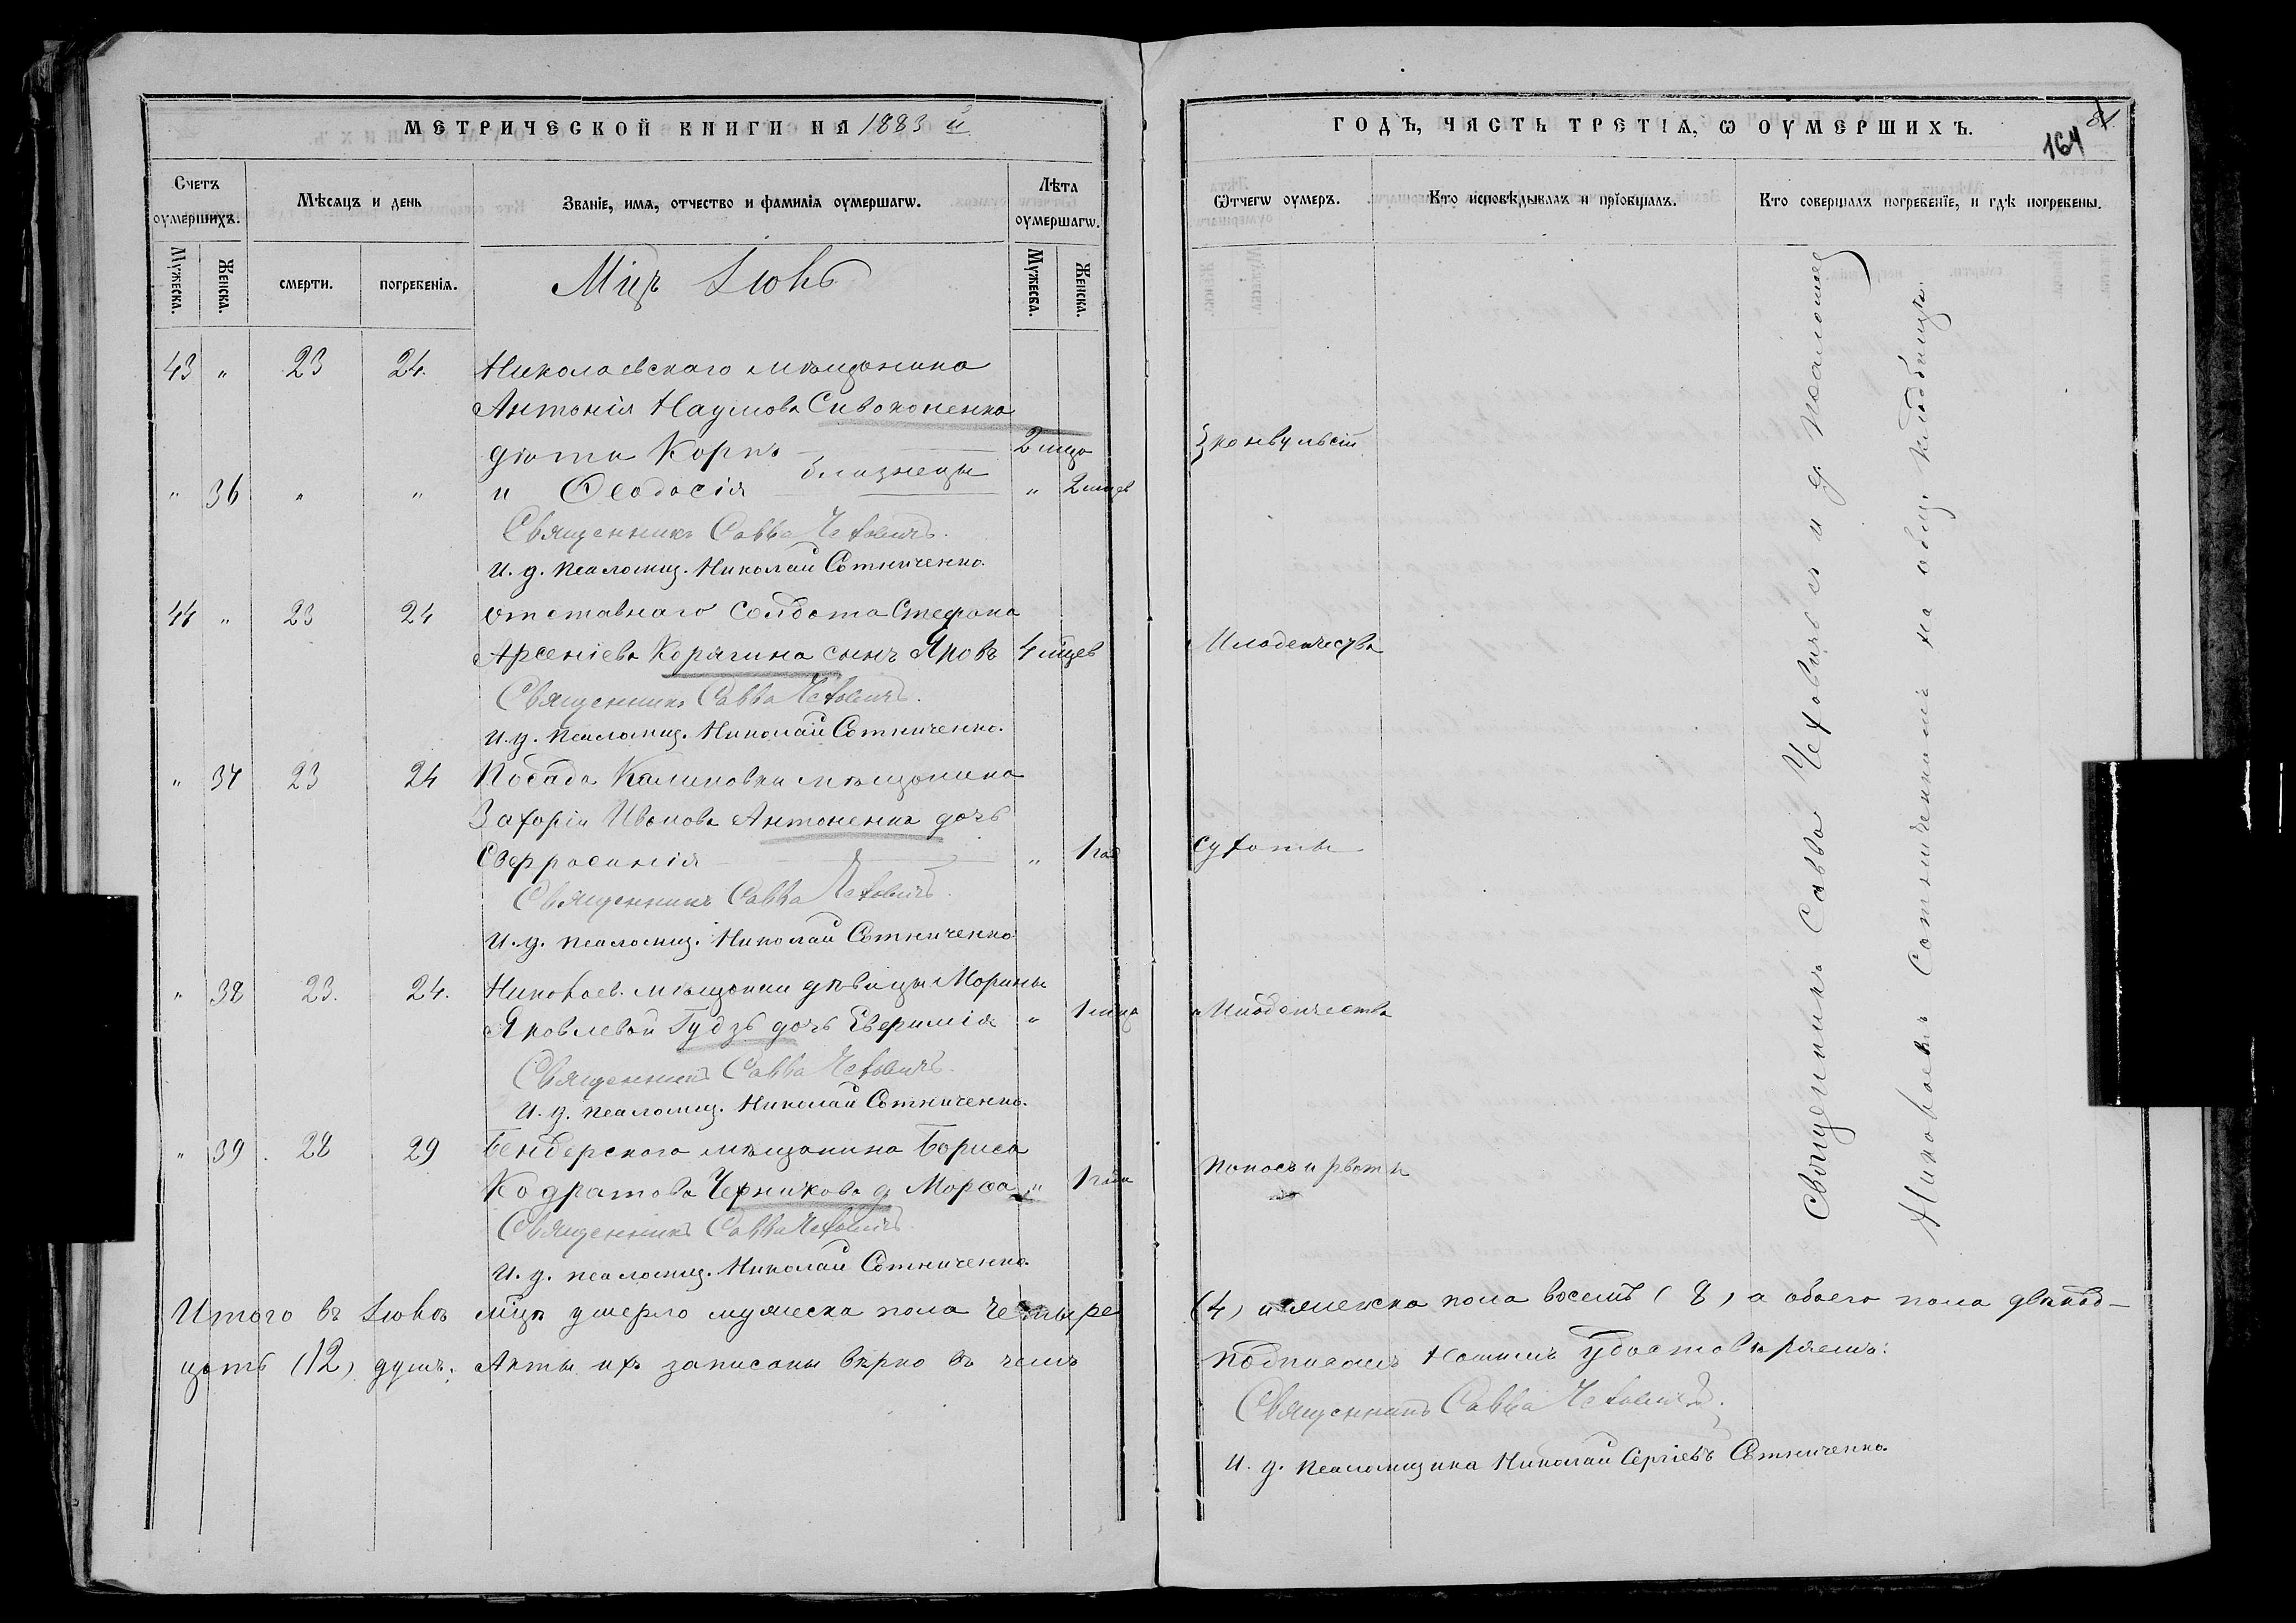 МЕТРИЧЕСКОЙ КНИГИ НА 1883 й
Счетъ оумершихъ.
Мужеска.
Женска.
Мѣсяцъ и день
смерти.
погребенія.
Званіе, имя, отчество и фамилія оумершагѡ.
Лѣта оумершагѡ.
Мужеска.
Женска.
Мцъ Іюнь
43 " 23 24. Николаевскаго мѣщанина
Антонія Наумова Сивоконенка
дѣти Карпъ 2 мца
близнецы
" 36 " " и Ѳеодосія " 2 мцев
Священникъ Савва Чехович.
И. д. псаломщ. Николай Сотниченко.
44 " 23 24 отставнаго солдата Стефана
Арсеніева Корягина сынъ Яковъ 4 мцев
Священникъ Савва Чехович.
И. д. псаломщ. Николай Сотниченко.
" 37 23 24 Посада Калиновки мѣщанина
Захарія Иванова Антоненка дочь
Евфросинія " 1 год
Священникъ Савва Чехович.
И. д. псаломщ. Николай Сотниченко
" 38 23. 24. Николаев. мѣщанки дѣвицы Марины
Яковлевой Гудзь дочь Евфимія " 1 мца
Священникъ Савва Чехович.
И. д. псаломщ. Николай Сотниченко.
" 39. 28 29 Бендерскаго мѣщанина Бориса
Кодратова Черникова д. Марѳа " 1 года
Священникъ Савва Чехович.
И. д. псаломщ. Николай Сотниченко.
Итого въ Іюнѣ мцѣ умерло мужеска пола четыре
цать (12) душъ; Акты ихъ записаны вѣрно въ чемъ
ГОДЪ, ЧАСТЬ ТРЕТІЯ, Ѡ ОУМЕРШИХЪ.
164
81
Ѿчегѡ оумеръ.
Кто исповѣдывалъ и пріобщалъ.
Кто совершалъ погребеніе, и гдѣ погребены.
конвульсіи
Младенчества
Сухоты
Младенчества
Поносъ и рвоты
Священникъ Савва Чеховичъ съ и д псаломщ
Николаемъ Сотниченкомъ на общ. кладбищѣ.
(4) и женска пола восемь (8) а обоего пола двѣнад-
подписомъ нашимъ удостовѣряемъ:
Священникъ Савва Чехович.
И. д. псаломщика Николай Сергіевъ Сотниченко.